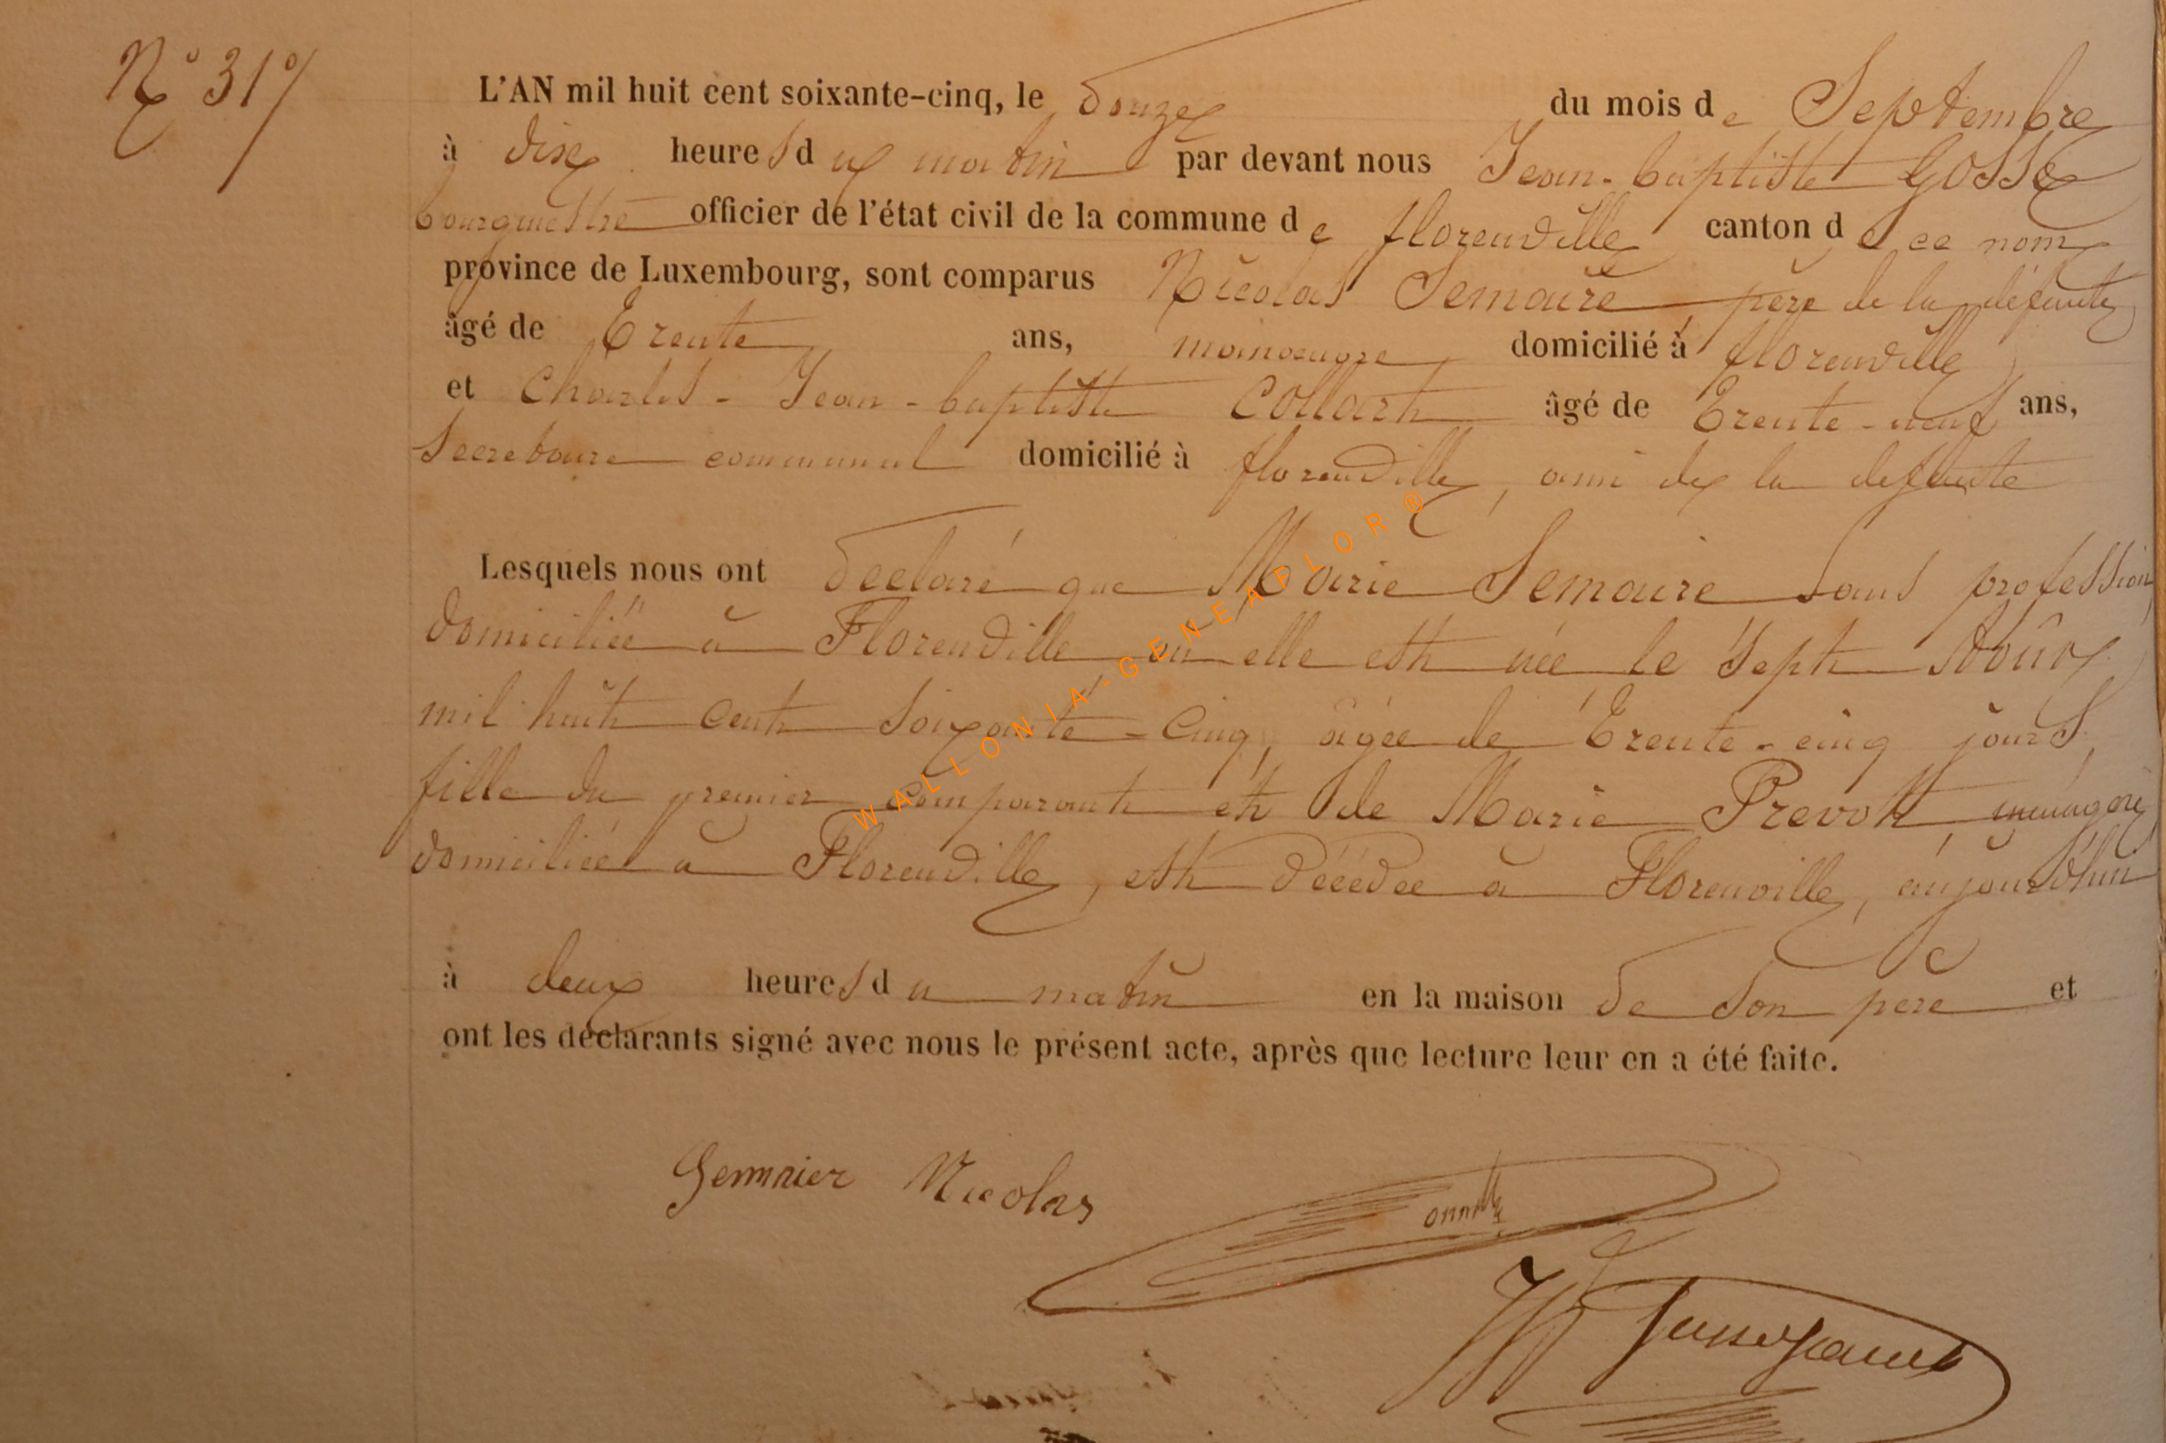 N° 31
L'AN mil huit cent soixante-cinq, le douze du mois de Septembre
à dix heures du matin par devant nous Jean-baptiste GOSSE
bourgmestre officier de l'état civil de la commune de florenville canton de ce nom
province de Luxembourg, sont comparus Nicolas Semaire, père de la défunte
âgé de Trente ans, manoeuvre domicilié à florenville
et Charles-Jean-baptiste Collart âgé de Trente-neuf ans,
Secretaire communal domicilié à florenville, ami de la defunte
Lesquels nous ont declaré que Marie Semaire sans profession
domiciliée à Florenville où elle est née le Sept Août
mil huit cent soixante-cinq, âgée de Trente-cinq jours,
fille du premier comparant et de Marie Prevot, ménagère
domiciliée à Florenville, est décédée à Florenville, aujourd'hui
à deux heures du matin en la maison de son père et
ont les déclarants signé avec nous le présent acte, après que lecture leur en a été faite.
Semmier Nicolas
WALLONIA-GENEAFLOR®